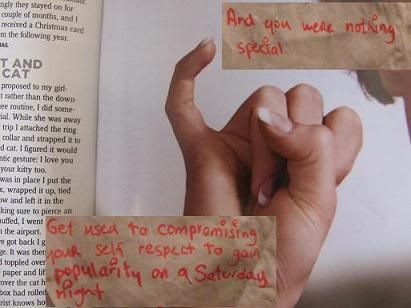 ngly they stayed on for
couple of months, and I
received a Christmas card
m the following year.
T AND
CAT
proposed to my girl-
t rather than the down-
ee routine, I did some-
ial. While she was away
trip I attached the ring
collar and strapped it to
d cat. I figured it would
ntic gesture: I love you
your kitty too.
was in place I put the
x, wrapped it up, tied
ow and left it in the
king sure to pierce an
uffled, I went
the airport.
e got back I g
ge. It was then
d toppled over
paper and lif
over the cat h
box had rolled
rist knows ho
And you were nothing
special.
Get used to compromising
your self respect to gain
popularity on a Saturday
night